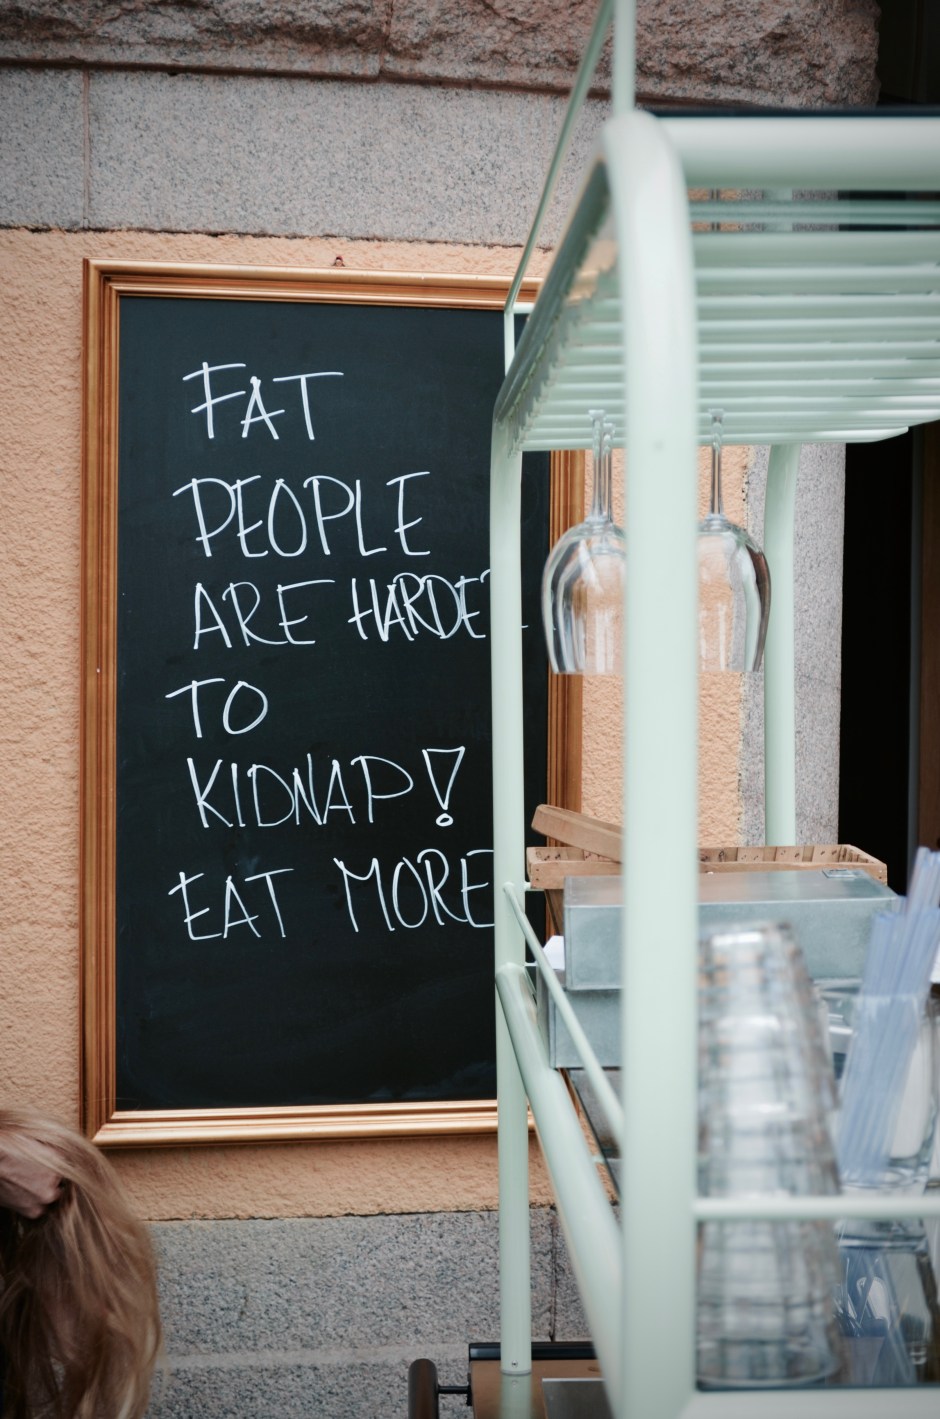 FAT
PEOPLE
ARE HARDER
TO
KIDNAP!
EAT MORE